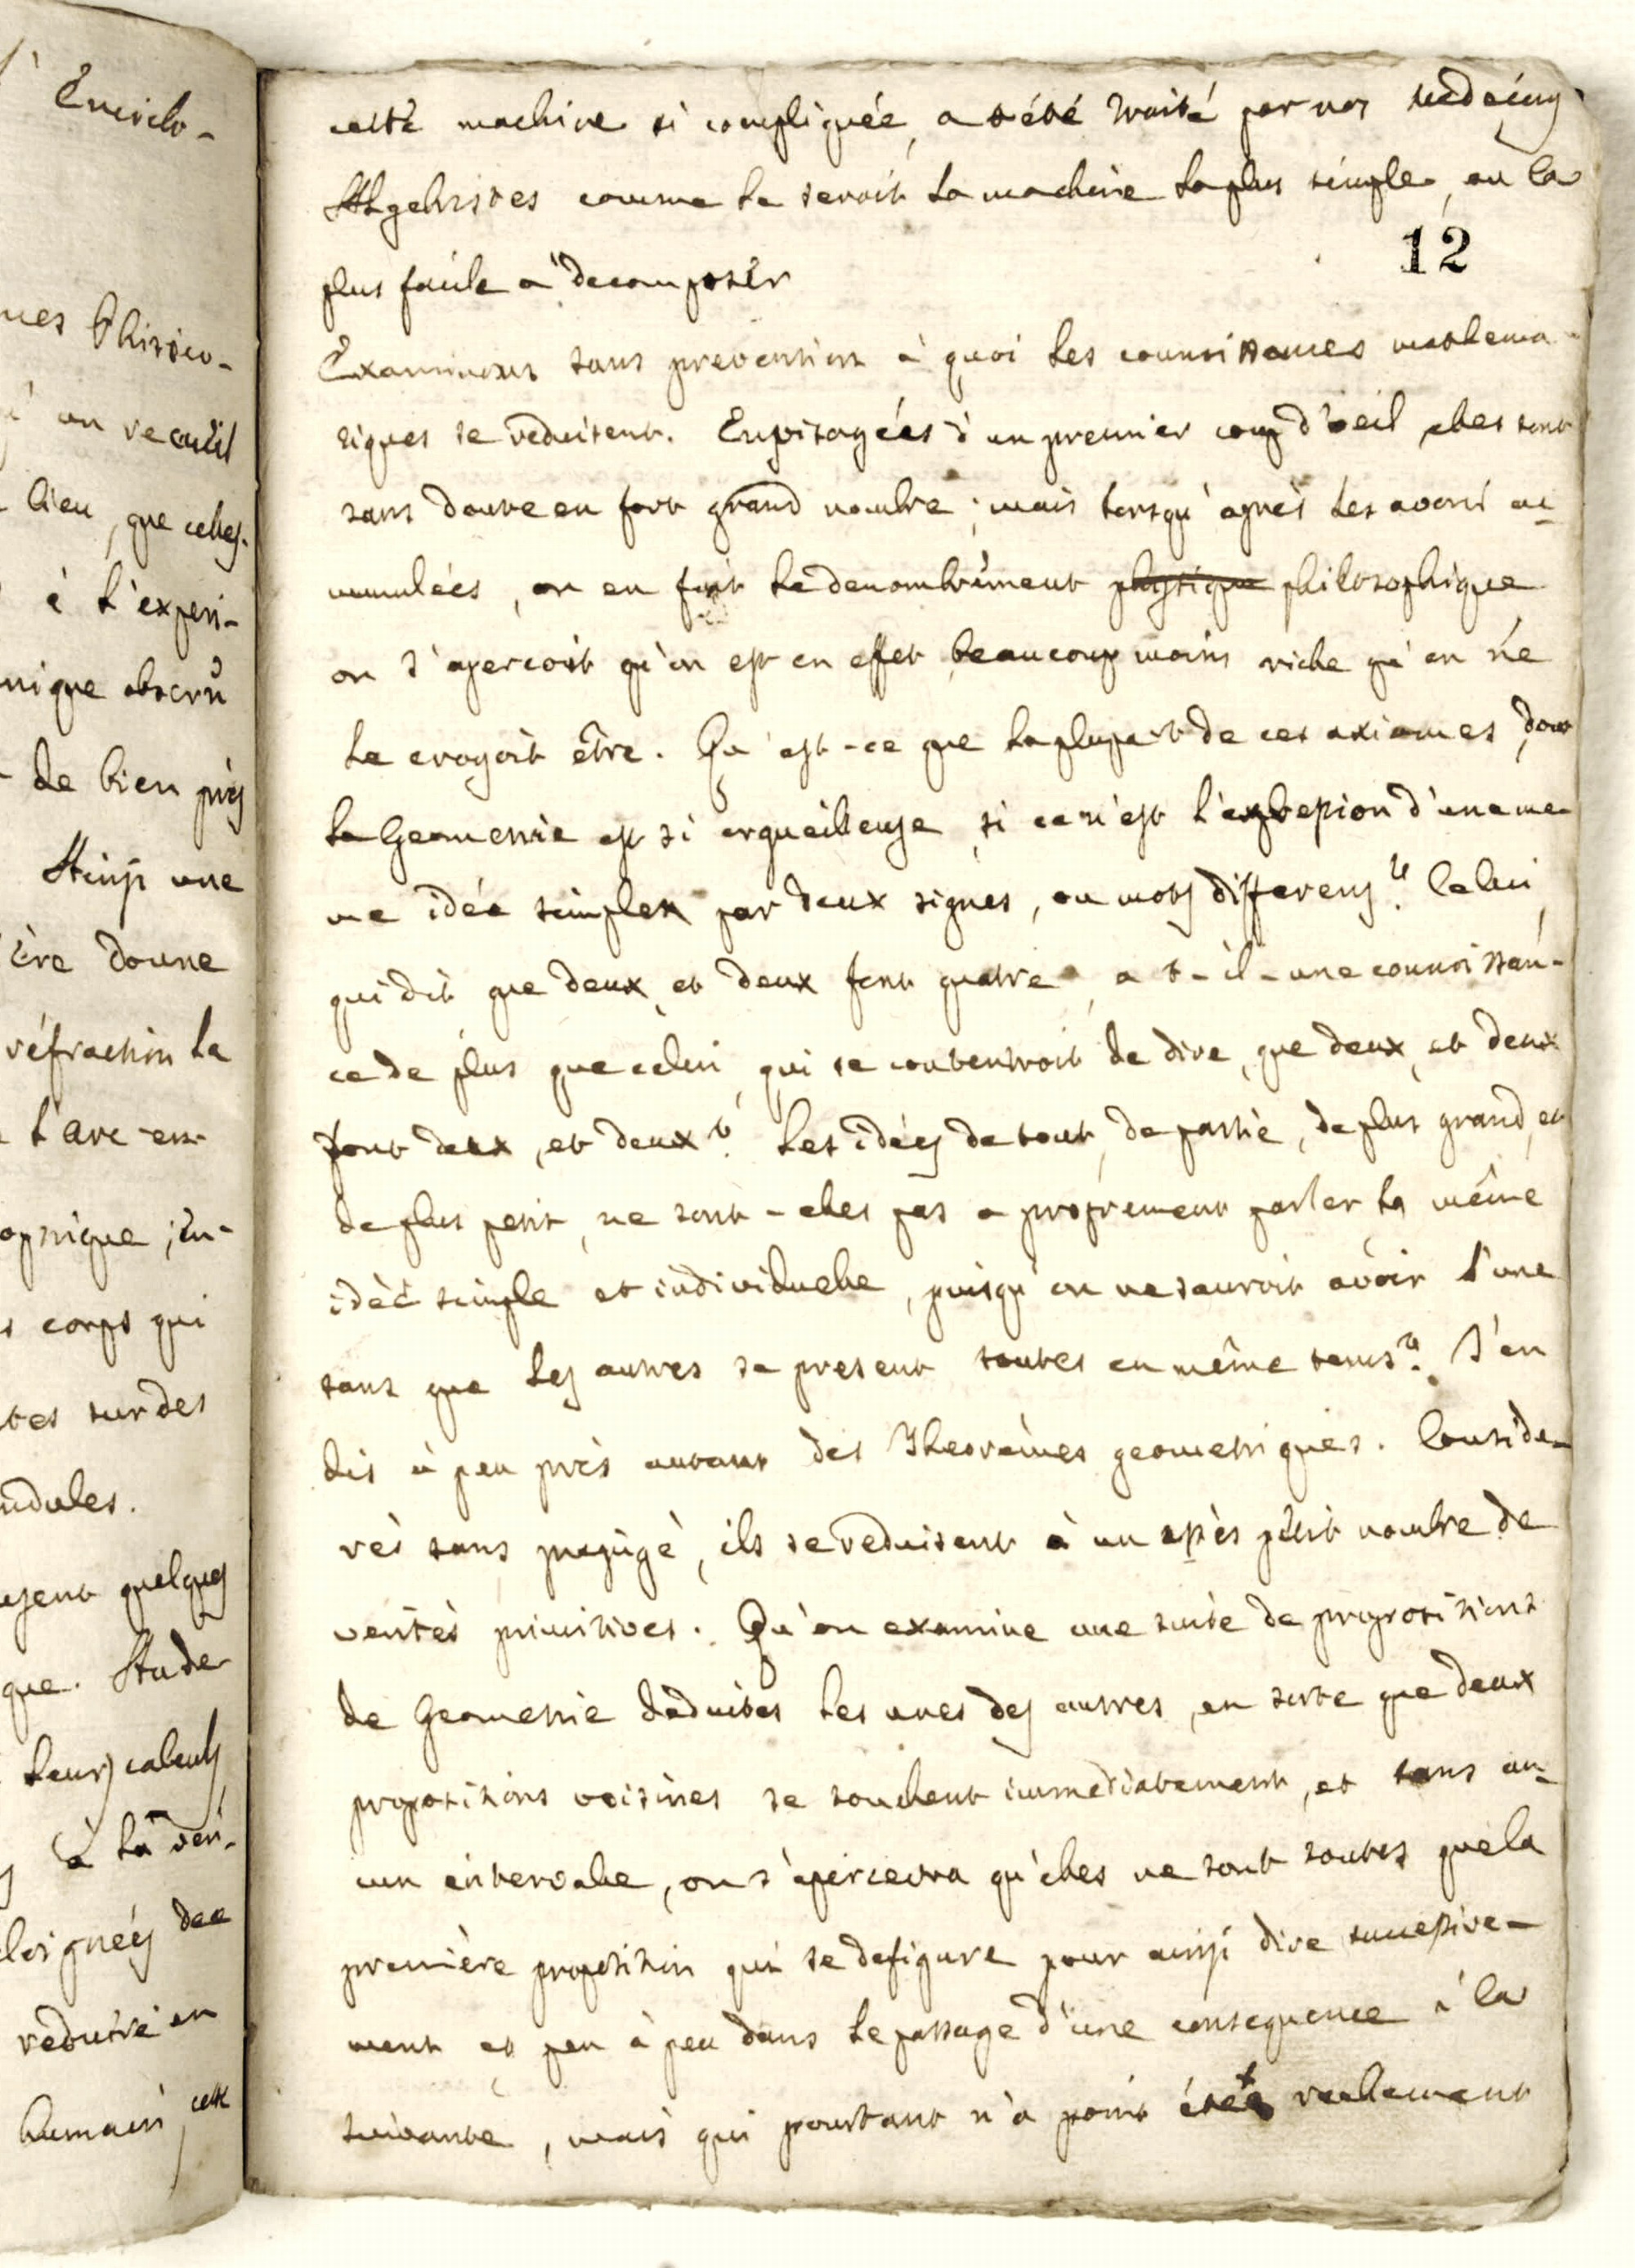 Enciclo-
ues Phisico-
un recueil
lieu, que celles-
à l'experi-
nique obscru
de bien près
Ainsi une
ère donne
réfraction la
l'arc-en-
optique ; en-
corps qui
tes sur des
ndules.
quelques
que. Au de-
leurs calculs
à la veri-
loignées des
reduire en
humain, cette
cette machine si compliquée, a été traité par nos medecins
Algebristes comme le seroit la machine la plus simple, ou la
12
plus facile a decomposer
Examinons sans prevention à quoi les connoissances mathema-
tiques se reduisent. Envisagées d'un premier coup d'oeil, elles sont
sans doute en fort grand nombre ; mais lorsqu'après les avoir ac-
cumulées, on en fait le denombrement physique philosophique
on s'apercoit qu'on est en effet beaucoup moins riche qu'on ne
le croyoit être. Qu'est-ce que la plupart de ces axiomes, dont
la Geometrie est si orgueilleuse, si ce n'est l'expression d'une me-
me idée simple par deux signes, ou mots differens ? Celui,
qui dit que deux, et deux font quatre, a t-il-une connoissan-
ce de plus que celui, qui se contentroit de dire, que deux, et deux
font deux, et deux ? Les idées de tout, de partie, de plus grand, et
de plus petit, ne sont-elles pas a proprement parler la même
idée simple et individuelle, puisqu'on ne sauroit avoir l'une
sans que les autres se present toutes en même tems ? J'en
dis à peu près autant des Theorèmes geometriques. Conside-
rés sans prejugé, ils se reduisent à un assès petit nombre de
verités primitives. Qu'on examine une suite de propositions
de Geometrie deduites les unes des autres, en sorte que deux
propositions voisines se touchent immediatement, et sans au-
cun intervalle, on s'apercevra qu'elles ne sont toutes que la
première proposition qui se defigure pour ainsi dire successive-
ment et peu à peu dans le passage d'une consequence à la
suivante, mais qui pourtant n'a point été reellement